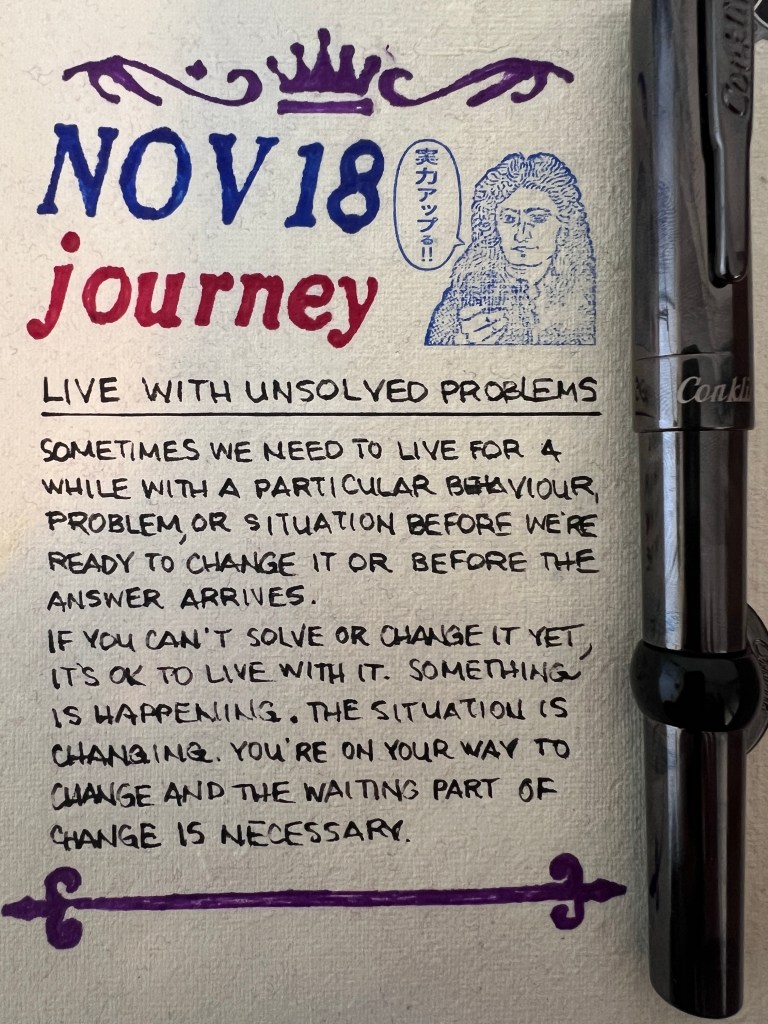 NOV 18
実力アップる!!
journey
LIVE WITH UNSOLVED PROBLEMS
SOMETIMES WE NEED TO LIVE FOR A
WHILE WITH A PARTICULAR BEHAVIOUR,
PROBLEM, OR SITUATION BEFORE WE'RE
READY TO CHANGE IT OR BEFORE THE
ANSWER ARRIVES.
IF YOU CAN'T SOLVE OR CHANGE IT YET,
IT'S OK TO LIVE WITH IT. SOMETHING
IS HAPPENING. THE SITUATION IS
CHANGING. YOU'RE ON YOUR WAY TO
CHANGE AND THE WAITING PART OF
CHANGE IS NECESSARY.
Conklin
Conkli